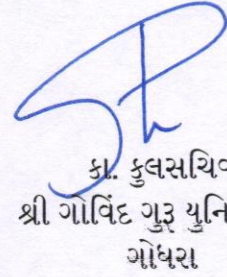 કા. કુલસચિવ
શ્રી ગોવિંદ ગુરૂ યુનિ
ગોધરા